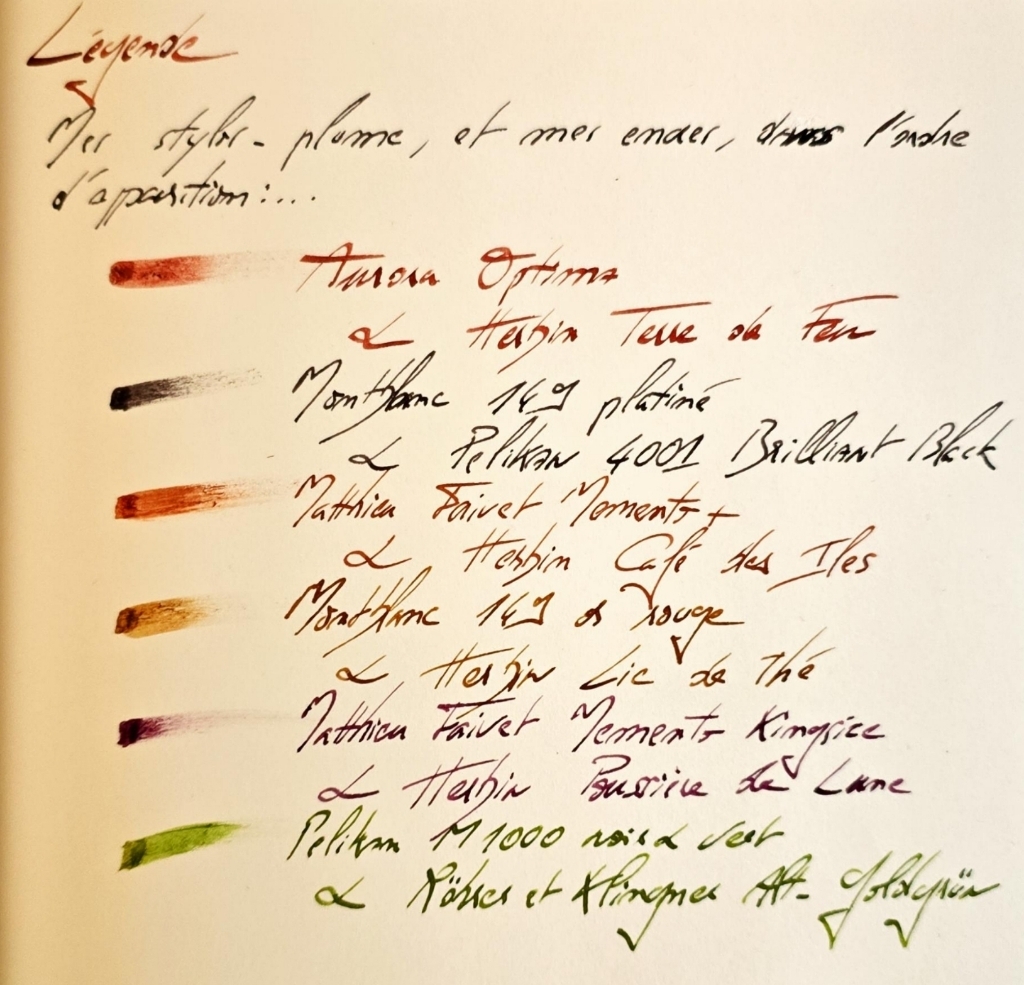 Légende
Mes stylos-plume, et mes encres, dans l'ordre
d'apparition :...
Aurora Optima
& Herbin Terre de Feu
Montblanc 149 platiné
& Pelikan 4001 Brilliant Black
Matthieu Faivet Mements+
& Herbin Café des Iles
Montblanc 149 or rouge
& Herbin Lie de Thé
Matthieu Faivet Mements Kingsize
& Herbin Poussière de Lune
Pelikan M1000 noir & vert
& Röhrer et Klingner Alt-Goldgrün